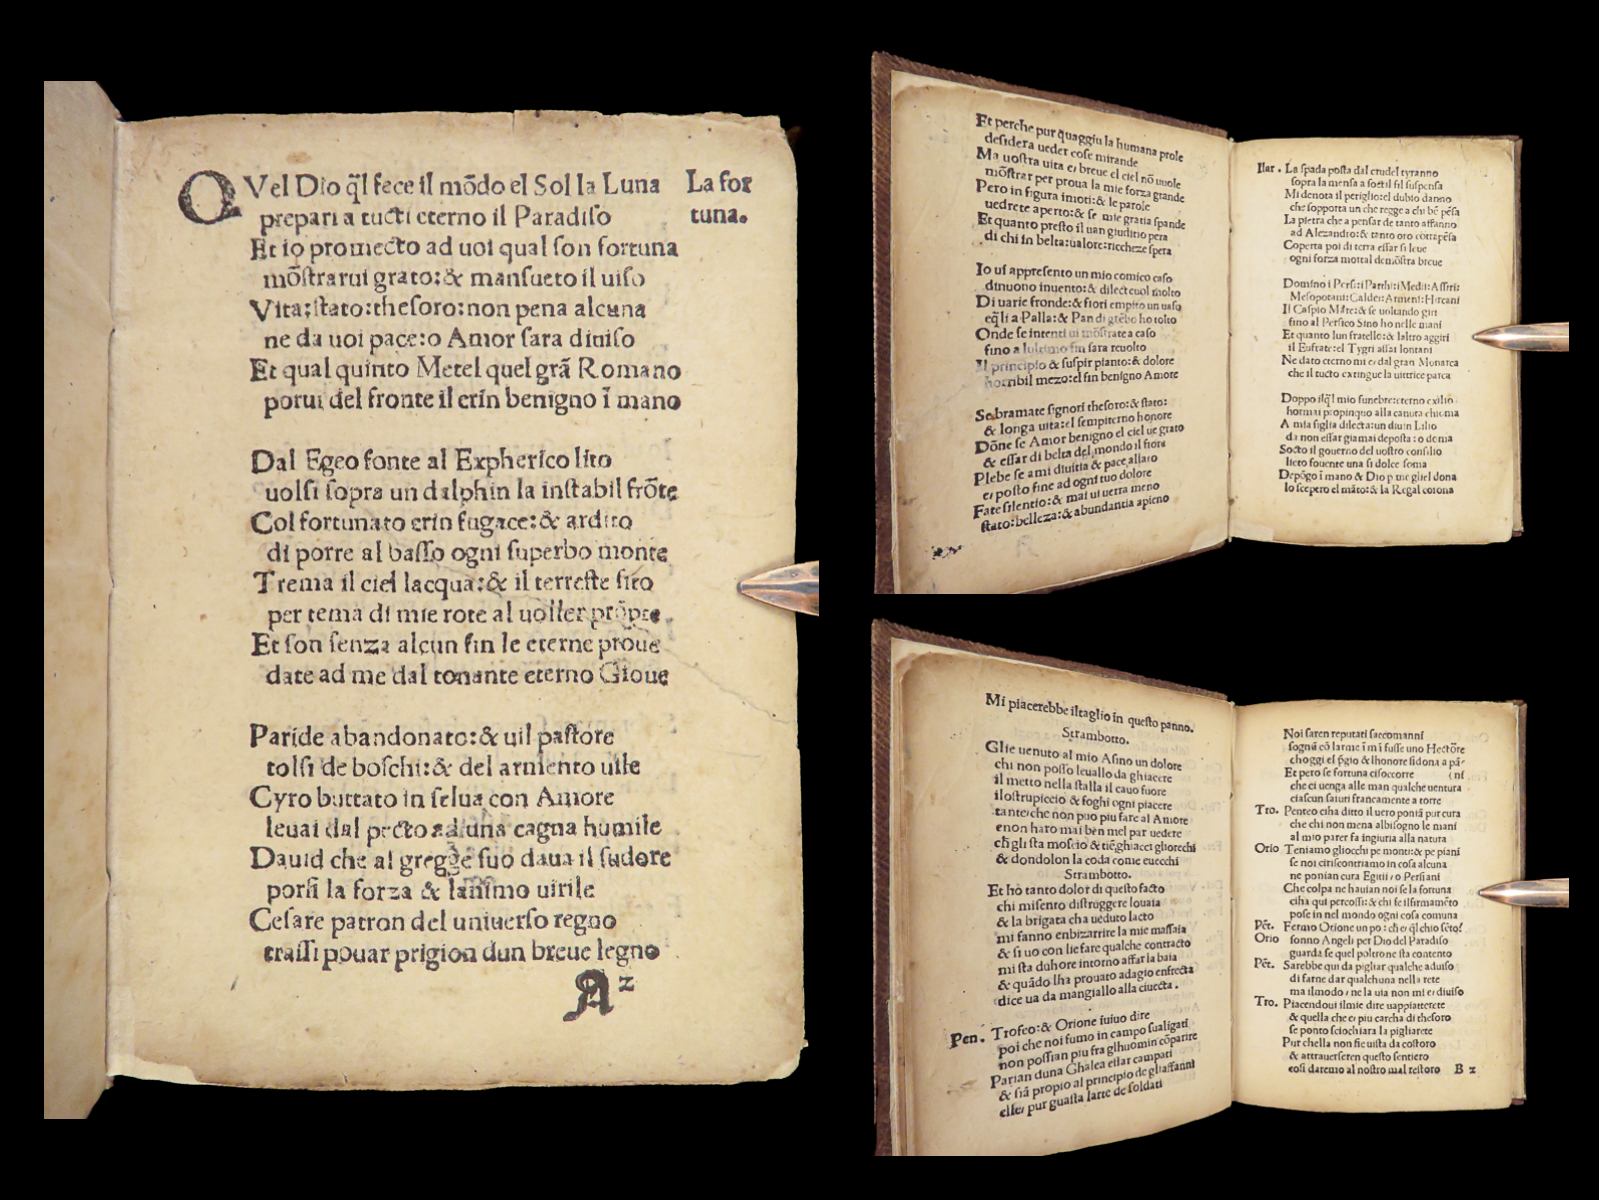 QVel Dio q̃l fece il mõdo el Sol la Luna La for
prepari a tucti eterno il Paradiſo tuna.
Et io promecto ad uoi qual ſon fortuna
mõſtrarui grato:& manſueto il uiſo
Vita:ſtato:theſoro:non pena alcuna
ne da uoi pace:o Amor ſara diuiſo
Et qual quinto Metel quel grã Romano
porui del fronte il crin benigno ĩ mano
Dal Egeo fonte al Expherico lito
uolſi ſopra un dalphin la inſtabil frõte
Col fortunato crin fugace:& ardito
di porre al baſſo ogni ſuperbo monte
Trema il ciel lacqua:& il terreſte ſito
per tema di mie rote al uoller
Et ſon ſenza alcun fin le eterne proue
date ad me dal tonante eterno Gioue
Paride abandonato:& uil paſtore
tolſi de boſchi:& del armento uile
Cyro buttato in ſelua con Amore
leuai dal pecto ad una cagna humile
Dauid che al gregge ſuo daua il ſudore
porſi la forza & lanimo uirile
Ceſare patron del uniuerſo regno
traſſi pouar prigion dun breue legno
A 2
Et perche pur q̃uaggiu la humana prole
deſidera ueder coſe mirande
Ma uoſtra uita e breue el ciel nõ uuole
mõſtrar per proua la mie forza grande
Pero in figura imoti:& le parole
uedrete aperto:& ſe mie gratia ſpande
Et quanto preſto il uan giuditio pera
di chi in belta:ualore:riccheze ſpera
Io ui appreſento un mio comico caſo
dinuono inuento:& dilecteuol molto
Di uarie fronde:& fiori empito un uaſo
eq̃li a Palla:& Pan di grẽbo ho tolto
Onde ſe intenti ui mõſtrate a caſo
fino a lultimo fin ſara reuolto
Il principio & ſuſpir pianto:& dolore
horribil mezo:el fin benigno Amore
Se bramate ſignori theſoro:& ſtato:
& longa uita:el ſempiterno honore
Dõne ſe Amor benigno el ciel ue grato
& eſſar di belta del mondo il fiore
Plebe ſe ami diuitia & pace allato
et poſto fine ad ogni tuo dolore
Fate ſilentio:& mai ui uerra meno
ſtato:belleza:& abundantia apieno
Ilar. La ſpada poſta dal crudel tyranno
ſopra la menſa a ſoctil fil ſuſpenſa
Mi denota il periglio:el dubio danno
che ſopporta un che regge a chi bẽ pẽſa
La pietra che a penſar de tanto affanno
ad Alexandro:& tanto oro cõtrapẽſa
Coperta poi di terra eſſar ſi leue
ogni forza mortal demõſtra breue
Domino i Perſi:i Parthi:i Medii:Aſſirii:
Meſopotani:Caldei:Armeni:Hircani
Il Caſpio Mare:& ſe uoltando giri
fino al Perſico Sino ho nelle mani
Et quanto lun fratello:& laltro aggiri
il Eufrate:el Tygri aſſai lontani
Ne dato eterno mi e dal gran Monarca
che il tucto extingue la uitrice parca
Doppo ilq̃l mio funebre:eterno exilio
hormai propinquo alla canuta chioma
A mia figlia dilecta:un diuin Lilio
da non eſſar giamai depoſta:o doma
Socto il gouerno del uoſtro conſilio
lieto fouente una ſi dolce ſoma
Depõgo ĩ mano & Dio p me gliel dona
lo ſcepero el mãto:& la Regal corona
Mi piacerebbe il taglio in queſto panno.
Strambotto.
Glie uenuto al mio Aſino un dolore
chi non poſſo leuallo da ghiacere
il metto nella ſtalla il cauo fuore
iloſtrupiccio & foghi ogni piacere
tanteche non puo piu fare al Amore
enon haro mai ben mel par uedere
ch̃ gli ſta moſcio & tiẽ ghiacci gliorecchi
& dondolon la coda come euecchi
Strambotto.
Et hò tanto dolor di queſto facto
chi miſento diſtruggere louaia
& la brigata cha ueduto lacto
mi fanno enbizarrire la mie maſſaia
& ſi uo con lie fare qualche contracto
mi ſta duhore intorno affar la baia
& quãdo lha prouato adagio enfrecta
dice ua da mangiallo alla ciuecta.
Pen. Trofeo:& Orione iuiuo dire
poi che noi fumo in campo ſualigati
non poſſian piu fra glhuomin cõparire
Parian duna Ghalea eſſar campati
& ſiã propio al principio de gliaffanni
elle pur guaſta larte de ſoldati
Noi ſaren reputati ſaccomanni
ſognã cõ larme ĩ mĩ fuſſe uno Hectõre
choggi el p̃gio & lhonore ſidona a pã-
Et pero ſe fortuna ciſoccorre (ni
che ci uenga alle man qualche uentura
ciaſcun ſaiuti francamente a torre
Tro. Penteo ciha ditto il uero poniã pur cura
che chi non mena albiſogno le mani
al mio parer fa ingiuria alla natura
Orio. Teniamo gliocchi pe monti:& pe piani
ſe noi ciriſcontriamo in coſa alcuna
ne ponian cura Egitii / o Perſiani
Che colpa ne hauian noi ſe la fortuna
ciha qui percoſſi:& chi ſe ilfirmamẽto
poſe in nel mondo ogni coſa comuna
Pẽt. Fermo Orione un po:ch e q̃l chio ſẽto?
Orio ſonno Angeli per Dio del Paradiſo
guarda ſe quel poltrone ſta contento
Pẽt. Sarebbe qui da pigliar qualche aduiſo
di farne dar qualchuna nella rete
ma ilmodo / ne la uia non mi e diuiſo
Tro. Piacendoui ilmie dire uappiatterete
& quella che e piu carcha di theſoro
ſe ponto ſciochiara la pigliarete
Pur chella non ſie uiſta da coſtoro
& attrauerſeren queſto ſentiero
coſi daremo al noſtro mal reſtoro B 2